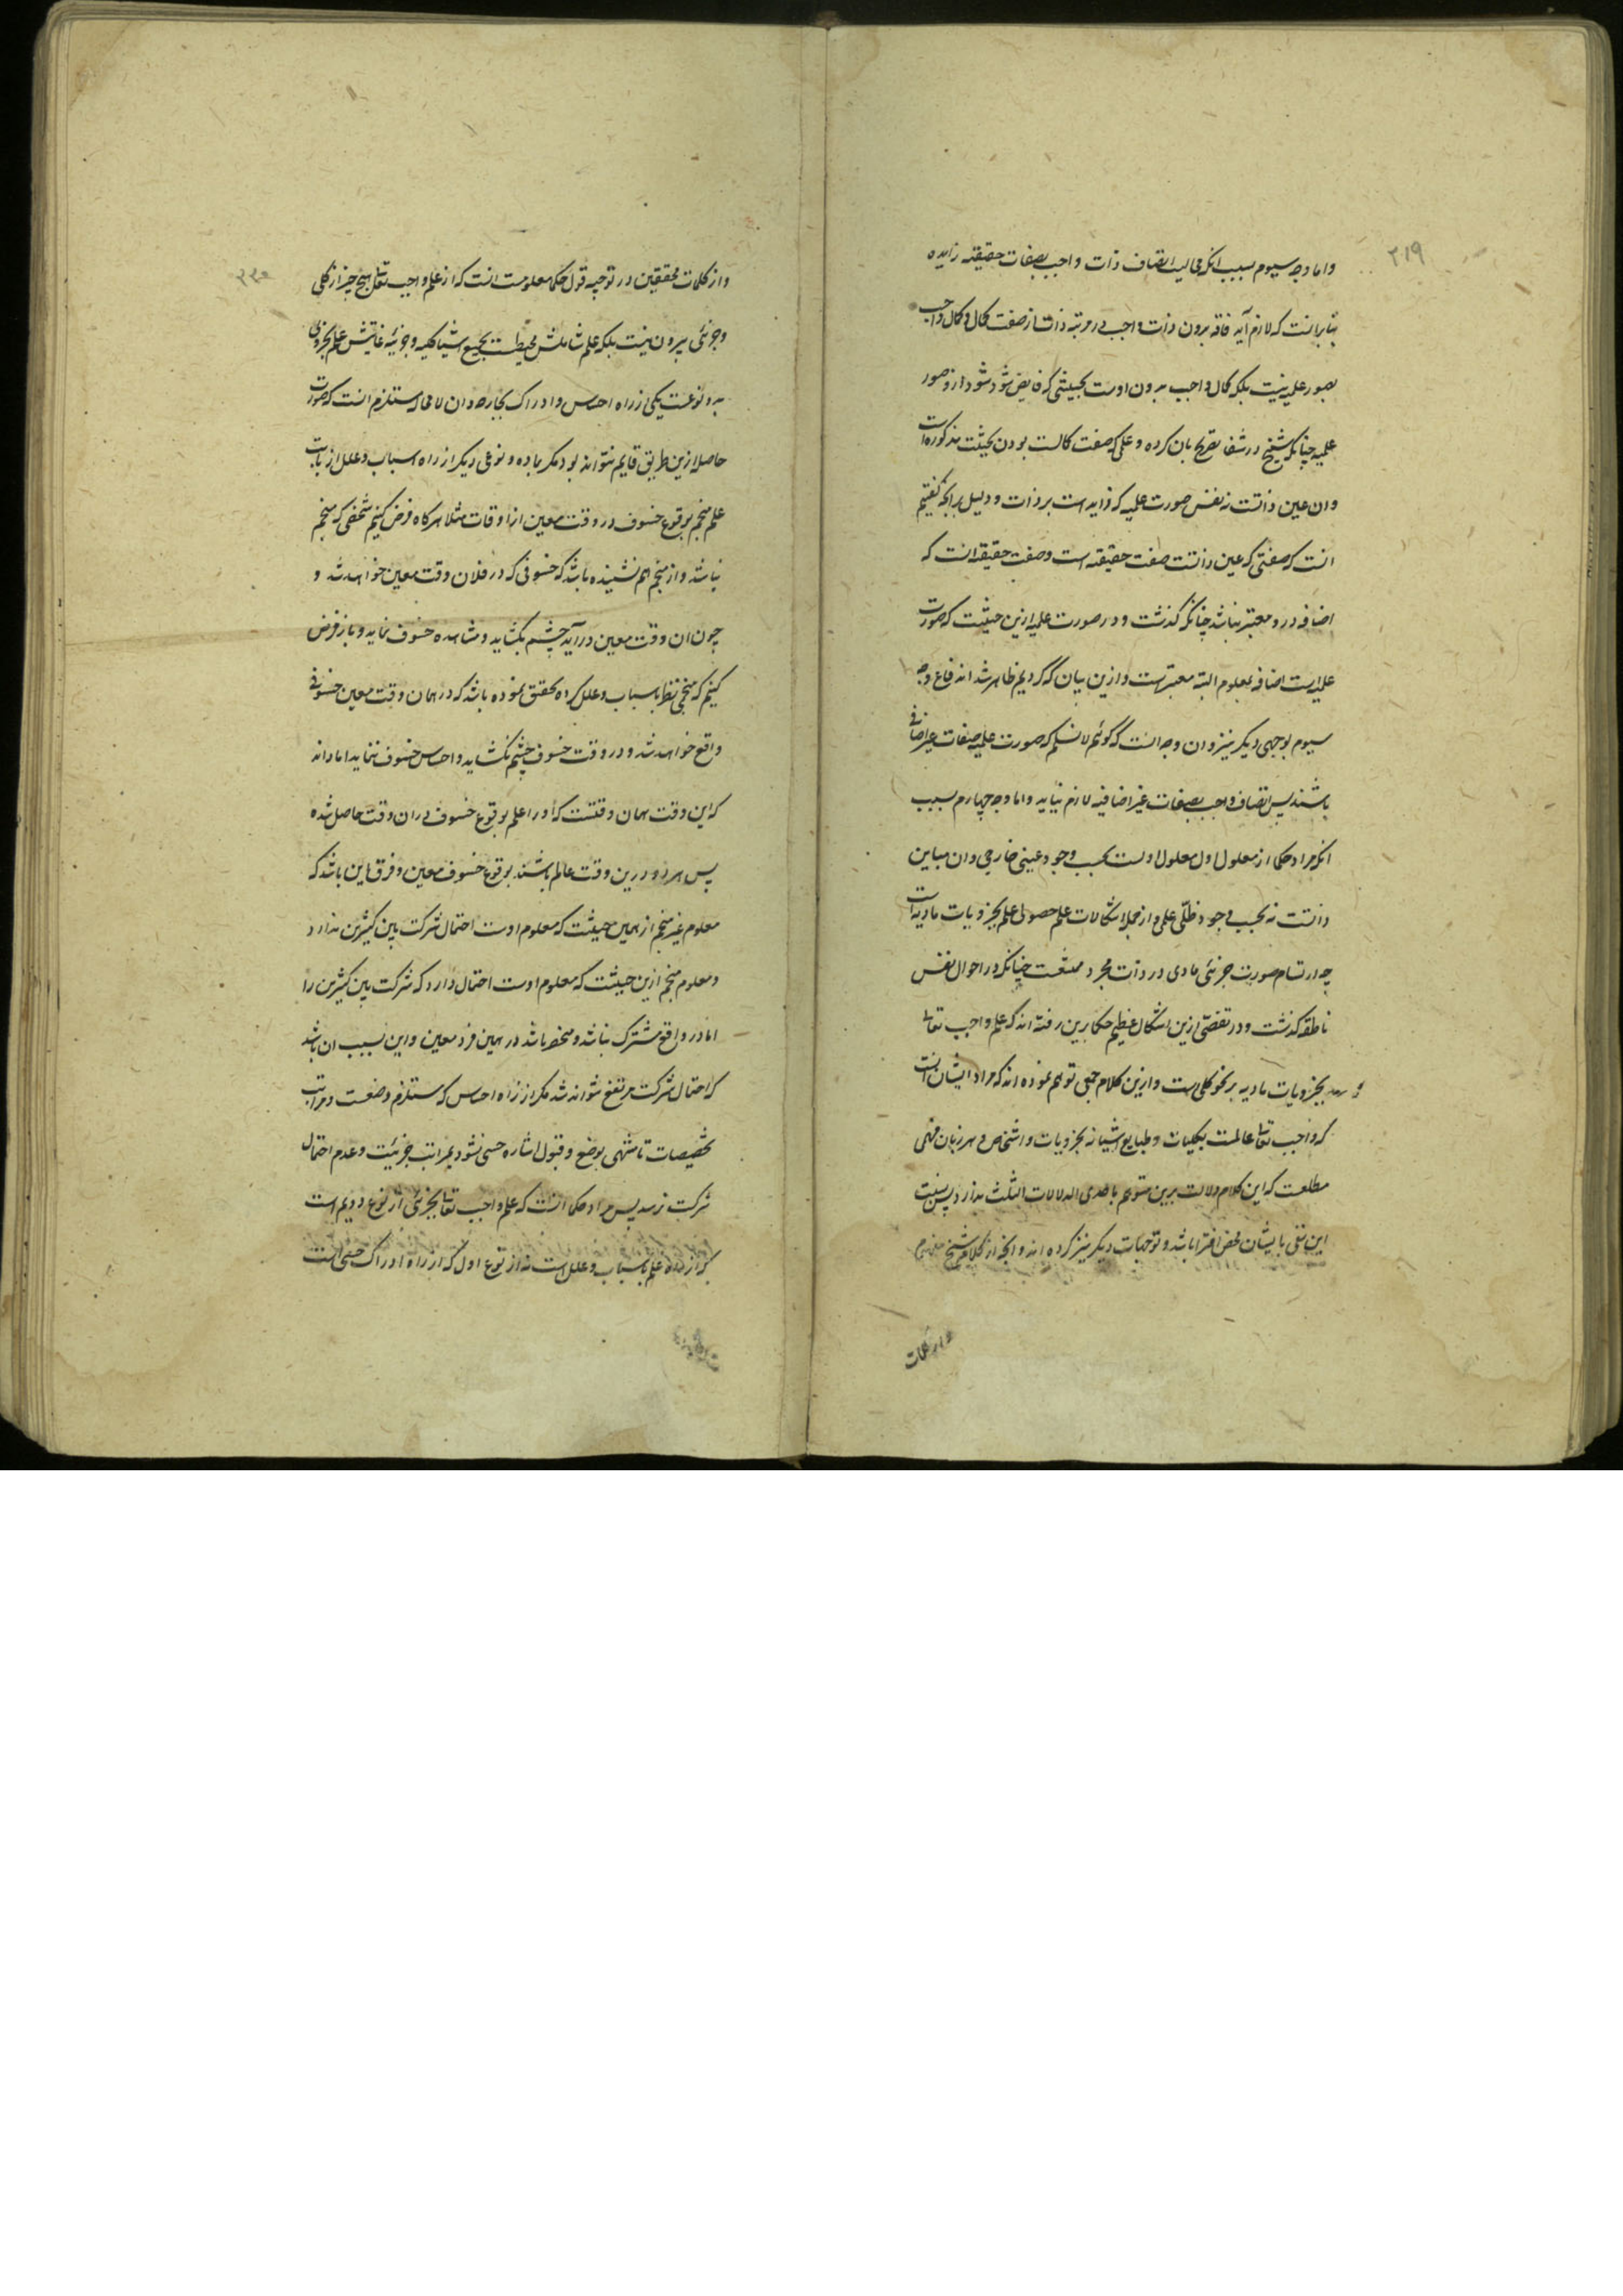 ۲۱۹
واما وجه سیوم بسبب انکه محالیت اتصاف ذات واجب بصفات حقیقیه زایده
بنابرانست که لازم آید فاقد بودن ذات واجب در مرتبه ذات از صفت کمال و کمال واجب
بصور علمیه نیست بلکه کمال واجب بودن اوست بحیثیتی که فایض شود شود ازو صور
علمیه چنانکه شیخ در شفا تصریح بان کرده و علمی که صفت کمالست بودن بحیثیت مذکوره است
وان عین ذاتست نه نفس صورت علمیه که زاید است بر ذات و دلیل برانچه گفتیم
انست که صفتی که عین ذاتست صفت حقیقیه است و صفت حقیقیه انست که
اضافه درو معتبر نباشد چنانکه گذشت و در صورت علمیه ازین حیثیت که صورت
علمیه است اضافه بمعلوم البته معتبرست وازین بیان که کردیم ظاهر شد اندفاع وجه
سیوم بوجهی دیگر نیز وان وجه انست که گوئیم لانسلم که صورت علمیه صفات غیر اضافی
باشند پس اتصاف واجب بصفات غیر اضافیه لازم نیاید واما وجه چهارم بسبب
انکه مراد حکما از معلول اول معلول اولست بحسب وجود عینی خارجی وان مباین
ذاتست نه بحسب وجود ظلّی علمی واز جمله اشکالات علم حصولی علم بجزویات مادیه است
چه ارتسام صورت جزئی مادی در ذات مجرد ممتنعست چنانکه در احوال نفس
ناطقه گذشت و در تفصّی ازین اشکال عظیم حکما برین رفته اند که علم واجب تعالی
بجزویات مادیه بر نحو کلی است وازین کلام جمعی توهم نموده اند که مراد ایشان انست
که واجب تعالی عالمست بکلیات و طبایع اشیا نه بجزویات و اشخاص و هر زبان فهمی
مطلعست که این کلام دلالت برین متوهم باحدی الدلالات الثلث ندارد پس نسبت
این نفی بایشان محض افترا باشد و توجیهات دیگر نیز کرده اند وانچه از کلام شیخ
واز کلمات
۲۲۰
واز کلمات محققین در توجیه قول حکما معلومست انست که از علم واجب تعالی هیچ چیز از کلی
وجزئی بیرون نیست بلکه علم شاملش محیطست بجمیع اشیا کلیه وجزئیه غایتش علم بجزوی
بدو نوعست یکی از راه احساس وادراک بجارحه وان لامحاله مستلزم انست که صورت
حاصله ازین طریق قایم نتواند بود مگر بماده و نوعی دیگر از راه اسباب و علل از بابت
علم منجم بوقوع خسوف در وقت معین از اوقات مثلا هرگاه فرض کنیم شخصی که منجم
نباشد واز منجم هم نشنیده باشد که خسوفی که در فلان وقت معین خواهد شد و
چون ان وقت معین درآید چشم بگشاید و مشاهده خسوف نماید و باز فرض
کنیم که منجمی نظر باسباب و علل کرده تحقق نموده باشد که در همان وقت معین خسوفی
واقع خواهد شد و در وقت خسوف چشم نگشاید و احساس خسوف ننماید اما داند
که این وقت همان وقتست که او را علم بوقوع خسوف دران وقت حاصل شده
پس هر دو درین وقت عالم باشند بوقوع خسوف معین و فرق این باشد که
معلوم غیر منجم از همین حیثیت که معلوم اوست احتمال شرکت بین کثیرین ندارد
و معلوم منجم ازین حیثیت که معلوم اوست احتمال دارد که شرکت بین کثیرین را
اما در واقع مشترک نباشد و منحصر باشد در همین فرد معین واین بسبب ان باشد
که احتمال شرکت مرتفع نتواند شد مگر از راه احساس که مستلزم وضعست و مراتب
تخصیصات تا منتهی بوضع و قبول اشاره حسی نشود بمراتب جزئیت و عدم احتمال
شرکت نرسد پس مراد حکما انست که علم واجب تعالی بجزئی از نوع دویم است
که از راه علم باسباب و علل است نه از نوع اول که از راه ادراک حسی است